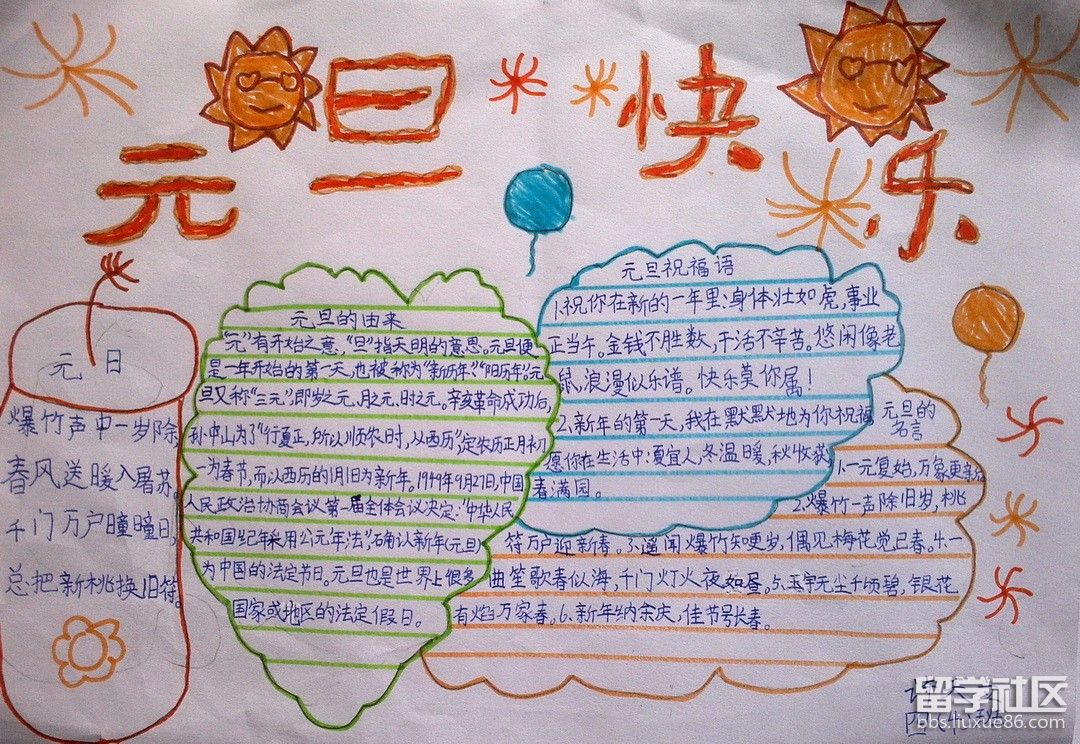 元旦快乐
元日
爆竹声中一岁除,
春风送暖入屠苏。
千门万户曈曈日,
总把新桃换旧符。
元旦的由来
“元”有开始之意,“旦”指天明的意思。元旦便
是一年开始的第一天,也被称为“新历年”“阳历年”。元
旦又称“三元”,即岁之元、月之元、时之元。辛亥革命成功后,
孙中山为了“行夏正,所以顺农时,从西历”,定农历正月初
一为春节,而以西历的1月1日为新年。1949年9月27日,中国
人民政治协商会议第一届全体会议决定:“中华人民
共和国纪年采用公元年法”,确认新年(元旦)
为中国的法定节日。元旦也是世界上很多
国家或地区的法定假日。
元旦祝福语
1.祝你在新的一年里:身体壮如虎,事业
正当午。金钱不胜数,干活不辛苦。悠闲像老
鼠,浪漫似乐谱。快乐莫你属!
2.新年的第一天,我在默默地为你祝福
愿你在生活中:夏宜人,冬温暖,秋收获
春满园。
元旦的
名言
1.一元复始,万象更新
2.爆竹一声除旧岁,桃
符万户迎新春。3.遥闻爆竹知更岁,偶见梅花觉已春。4.一
曲笙歌春似海,千门灯火夜如昼。5.玉宇无尘千顷碧,银花
有焰万家春。6.新年纳余庆,佳节号长春。
留学社区
bbs.liuxue86.com